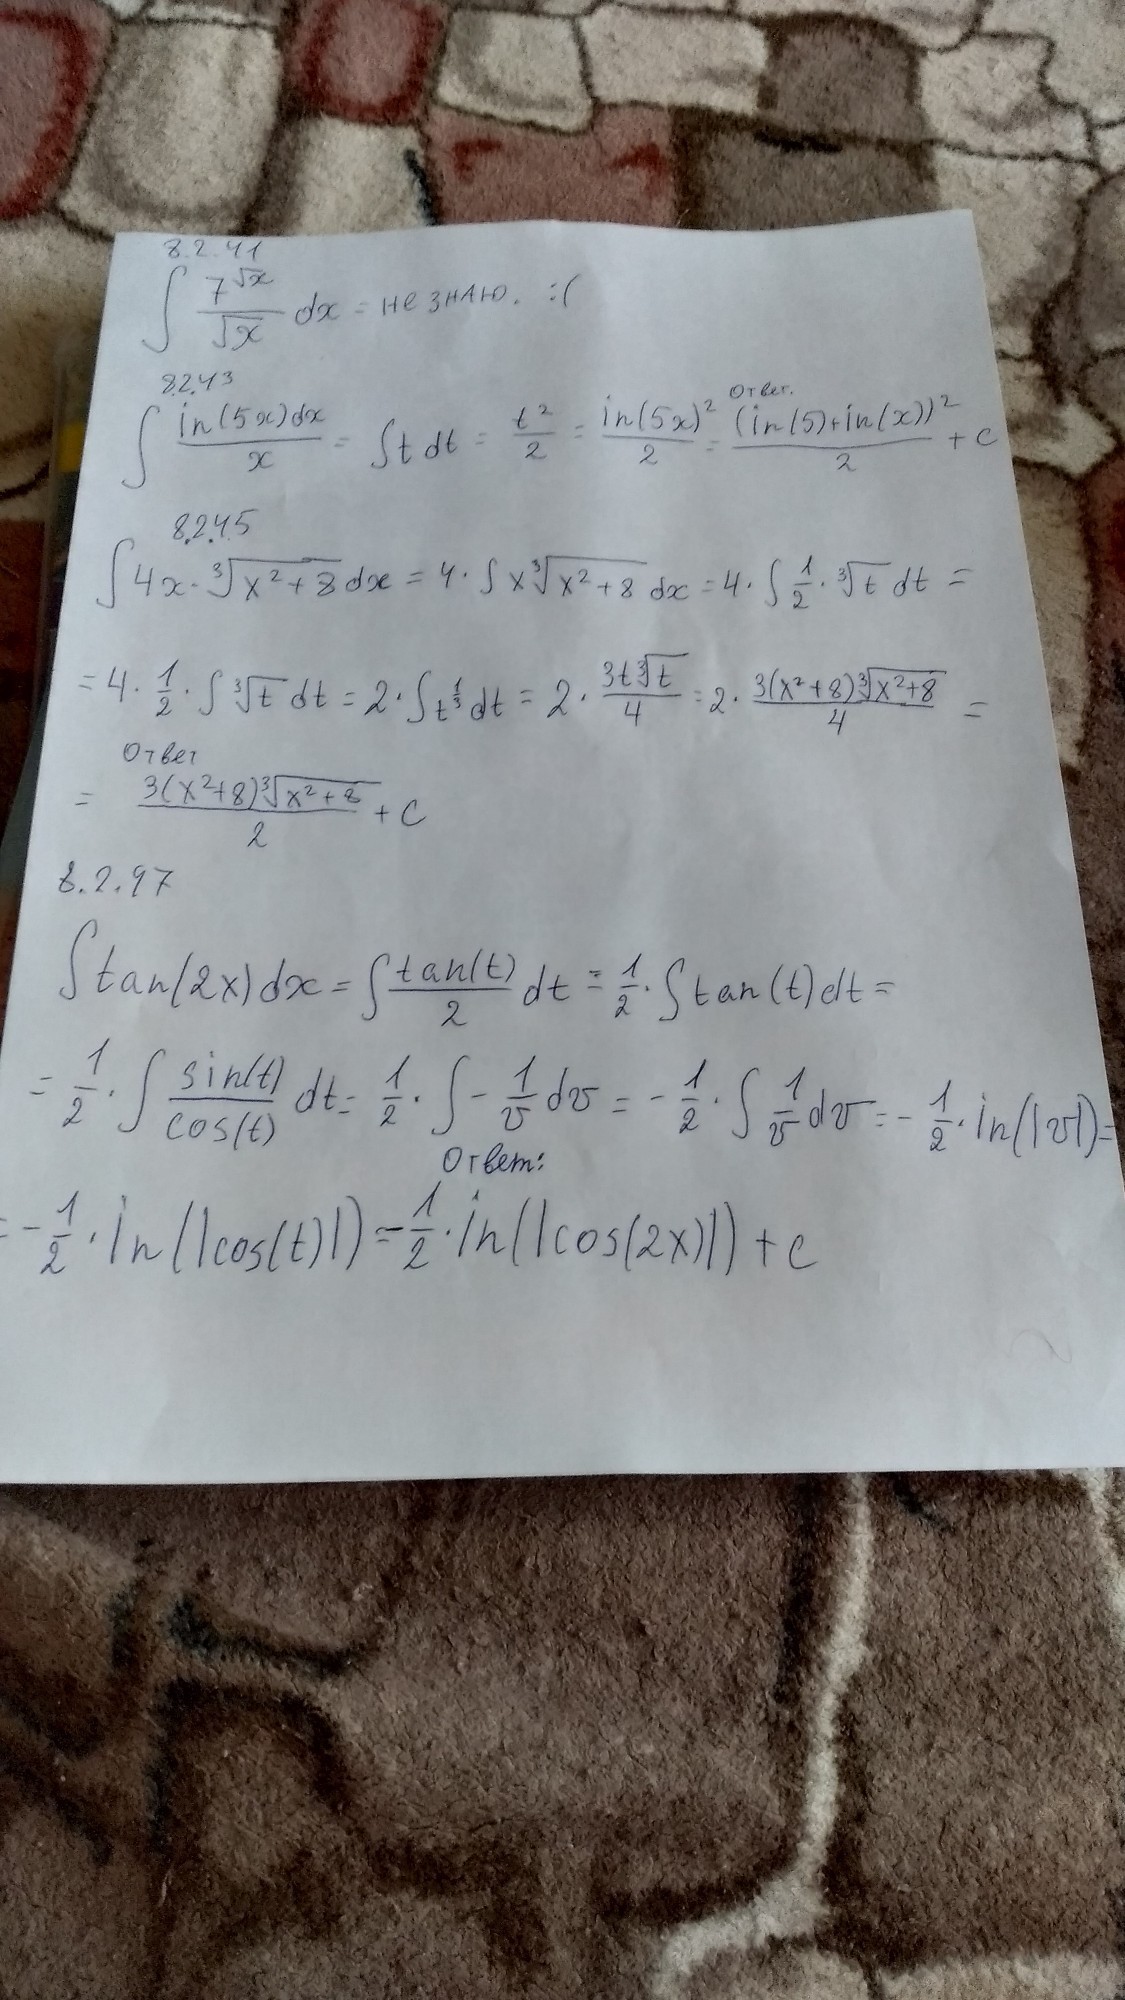 8.2.41
∫ 7^√x / √x dx = не знаю. :(
8.2.43
∫ in(5x)dx / x = ∫t dt = t²/2 = in(5x)²/2 = Ответ. (in(5)+in(x))²/2 + c
8.2.45
∫4x·∛(x²+8) dx = 4·∫x∛(x²+8) dx = 4·∫ 1/2·∛t dt =
= 4·1/2·∫∛t dt = 2·∫t^(1/3) dt = 2·3t∛t/4 = 2·3(x²+8)∛(x²+8)/4 =
Ответ
= 3(x²+8)∛(x²+8)/2 + C
8.2.97
∫tan(2x)dx = ∫tan(t)/2 dt = 1/2·∫tan(t)dt =
= 1/2·∫ sin(t)/cos(t) dt = 1/2·∫-1/v dv = -1/2·∫1/v dv = -1/2·in(|v|) =
Ответ:
= -1/2·in(|cos(t)|) = -1/2·in(|cos(2x)|) + c